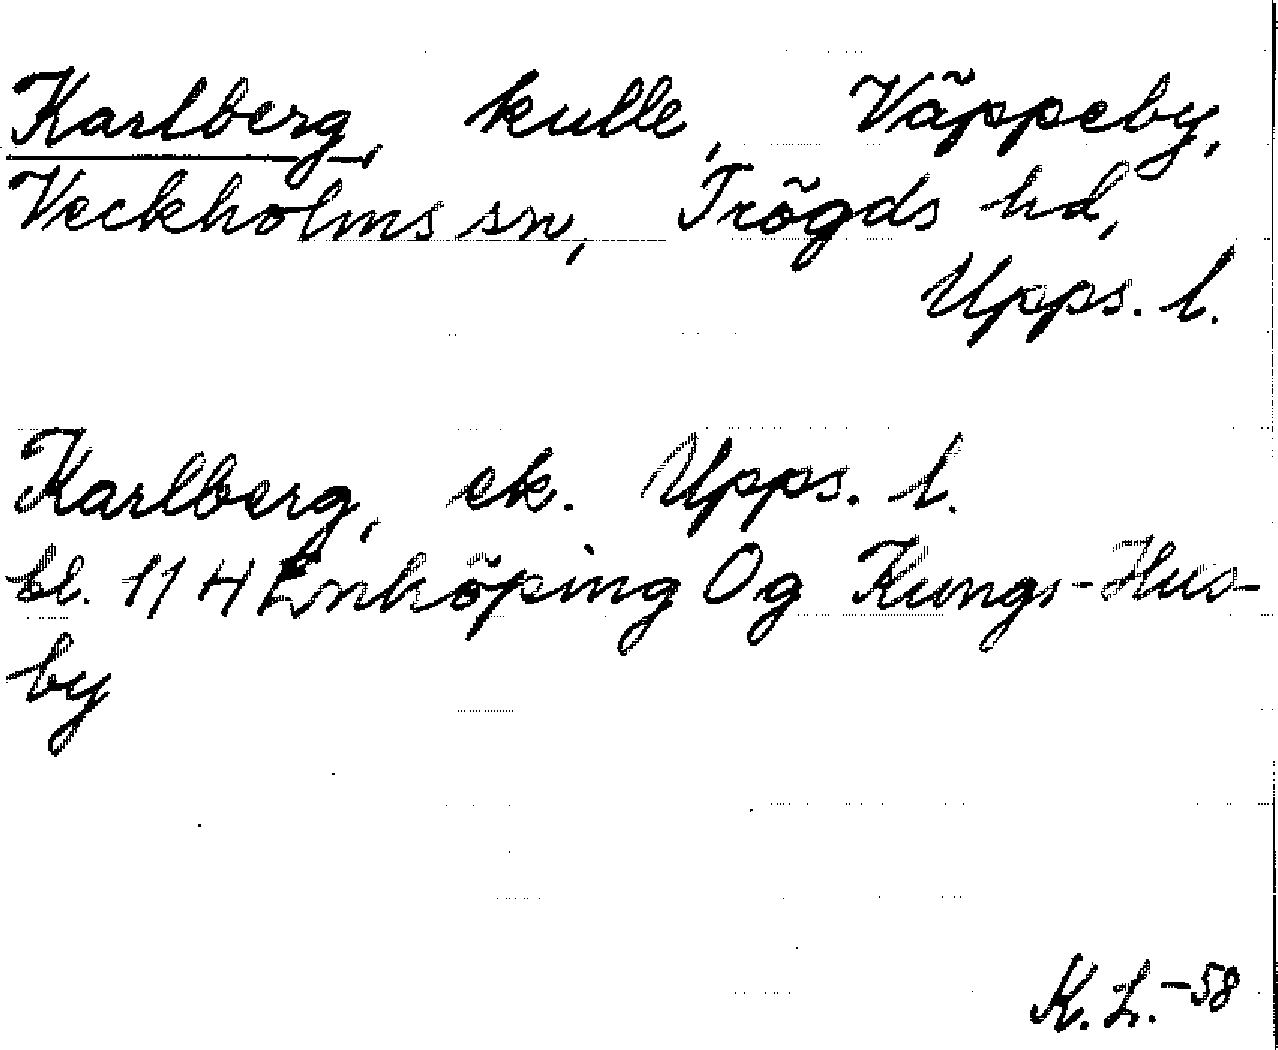 Karlberg, kulle, Väppeby,
Veckholms sn, Trögds hd,
Upps. l.
Karlberg, ek. Upps. l.
bl. 11 H Enköping Og Kungs-Hus-
by
K. L. -58